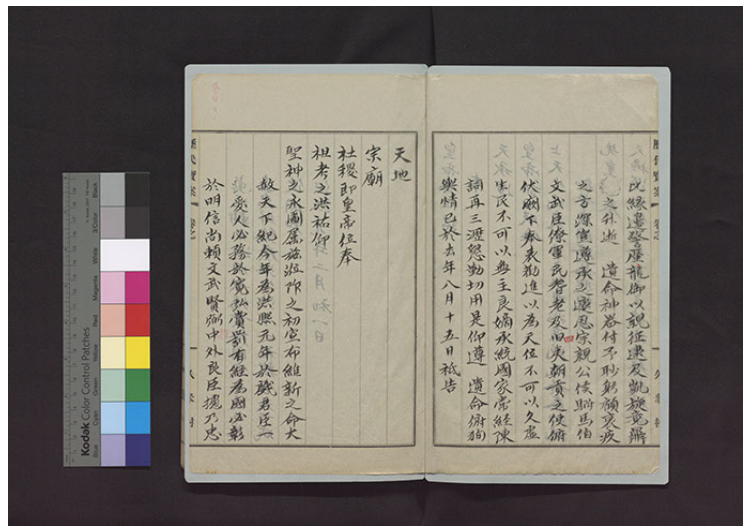 歷代寶案
比緣邊警塵龍御以親征逮及凱旋竟
之往逝　遺命神器付予眇躬顧哀疚
之方深豈遵承之遽忍宗親公侯駙馬伯
文武臣僚軍民耆老及四夷朝貢之使俯
伏闕下奉表勸進以為天位不可以久虛
生民不可以無主良嫡承統國家常經陳
詞再三瀝懇勤切用是仰遵　遺命俯徇
輿情已於去年八月十五日祗告
天地
宗廟
社稷即皇帝位奉
祖考之洪祐仰
聖神之永圖屬茲蒞阼之初宣布維新之命大
赦天下紀今年為洪熙元年於戲君臣一
愛人必務於寬弘賞罰有經為國必彰
於明信尚賴文武賢弼中外良臣攄乃忠
歷代寶案
Kodak Color Control Patches
Blue
Cyan
Green
Yellow
Red
Magenta
White
3/Color
Black